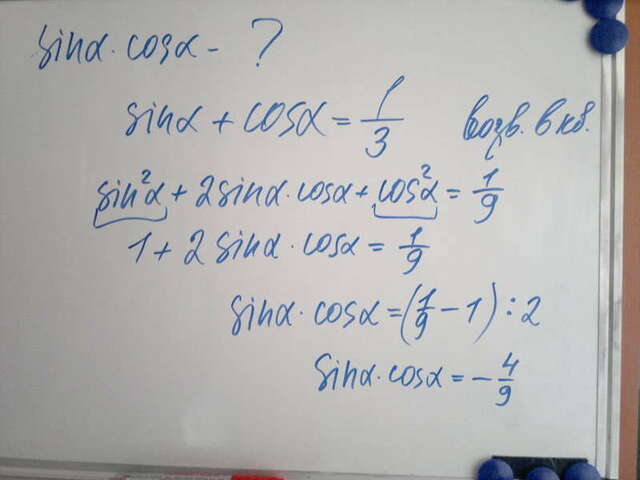 sinα · cosα - ?
sinα + cosα = 1/3 возв. в кв.
sin²α + 2sinα · cosα + cos²α = 1/9
1 + 2 sinα · cosα = 1/9
sinα · cosα = (1/9 - 1) : 2
sinα · cosα = - 4/9